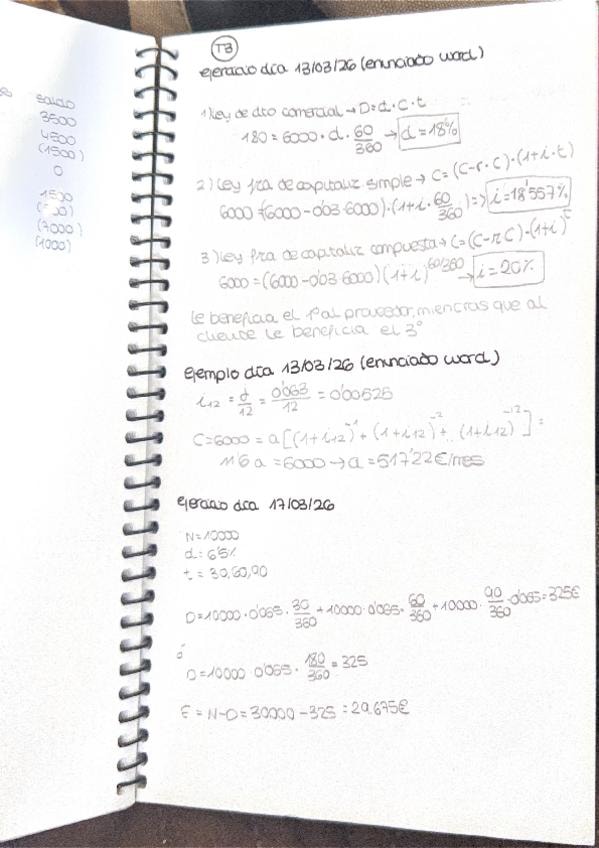 saldo
3500
4500
(1500)
0
1500
(7000)
(1000)
T3
ejercicio día 13/03/26 (enunciado word)
1) Ley de dto comercial → D=d·C·t
180=6000·d·60/360 → d=18%
2) Ley fra de capitaliz simple → C=(C-r·C)·(1+i·t)
6000=(6000-0'03·6000)·(1+i·60/360) => i=18'557%
3) Ley fra de capitaliz compuesta → C=(C-r·C)·(1+i)^t
6000=(6000-0'03·6000)(1+i)^60/360 → i=20%
le beneficia el 1º al proveedor, mientras que al
cliente le beneficia el 3º
Ejemplo día 13/03/26 (enunciado word)
i12 = J/12 = 0'063/12 = 0'00525
C=6000=a[(1+i12)^-1+(1+i12)^-2+...(1+i12)^-12]=
11'6a=6000→a=517'22€/mes
ejercicio día 17/03/26
N=10000
d=6'5%
t=30,60,90
D=10000·0'065·30/360+10000·0'065·60/360+10000·90/360·0'065=325€
ó
D=10000·0'065·180/360=325
E=N-D=30000-325=29.675€